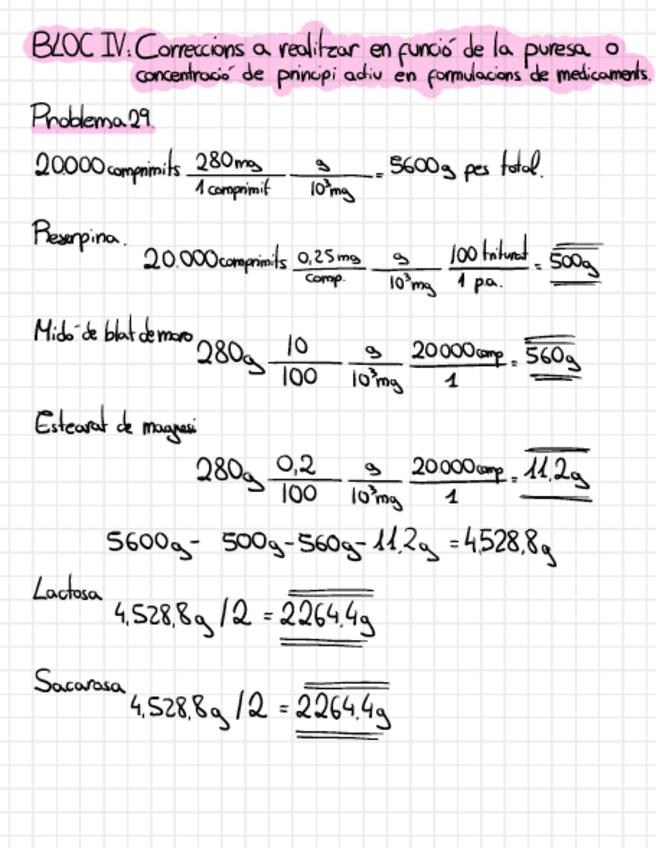 BLOC IV: Correccions a realitzar en funció de la puresa o
concentració de principi actiu en formulacions de medicaments.
Problema 29
20000 comprimits 280mg / 1 comprimit g / 10³mg = 5600g pes total.
Reserpina.
20.000 comprimits 0,25mg / comp. g / 10³mg 100 triturat / 1 p.a. = 500g
Midó de blat de moro
280g 10 / 100 g / 10³mg 20000 comp / 1 = 560g
Estearat de magnesi
280g 0,2 / 100 g / 10³mg 20000 comp / 1 = 11,2g
5600g - 500g - 560g - 11,2g = 4,528,8g
Lactosa
4,528,8g / 2 = 2264,4g
Sacarosa
4,528,8g / 2 = 2264,4g